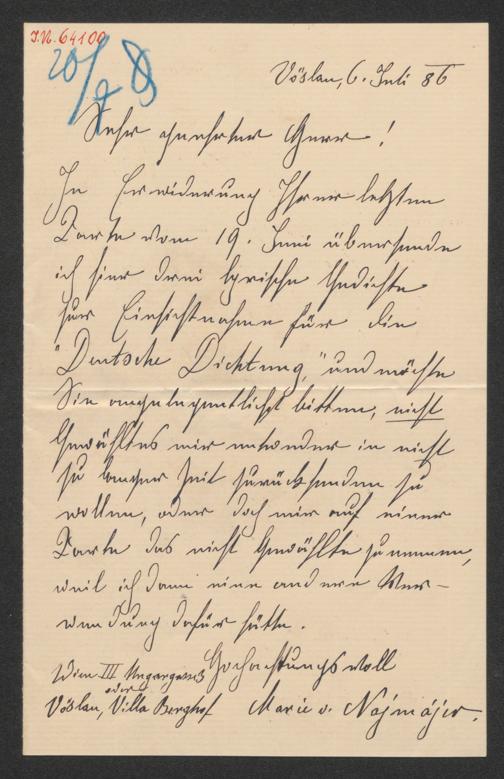 I.N. 64109
20/7 8
Vöslau, 6. Juli 86
Sehr geehrter Herr!
In Erwiderung Ihrer letzten
Karte vom 19. Juni übersende
ich hier drei lyrische Gedichte
zur Einsichtnahme für die
"Deutsche Dichtung," und möchte
Sie angelegentlichst bitten, nicht
Gewähltes mir entweder in nicht
zu langer Zeit zurücksenden zu
wollen, oder doch mir auf einer
Karte das nicht Gewählte zu nennen,
weil ich dann eine andere Ver-
wendung dafür hätte.
Hochachtungsvoll
Wien III Ungargasse 3
oder
Vöslau, Villa Berghof
Marie v. Najmájer.